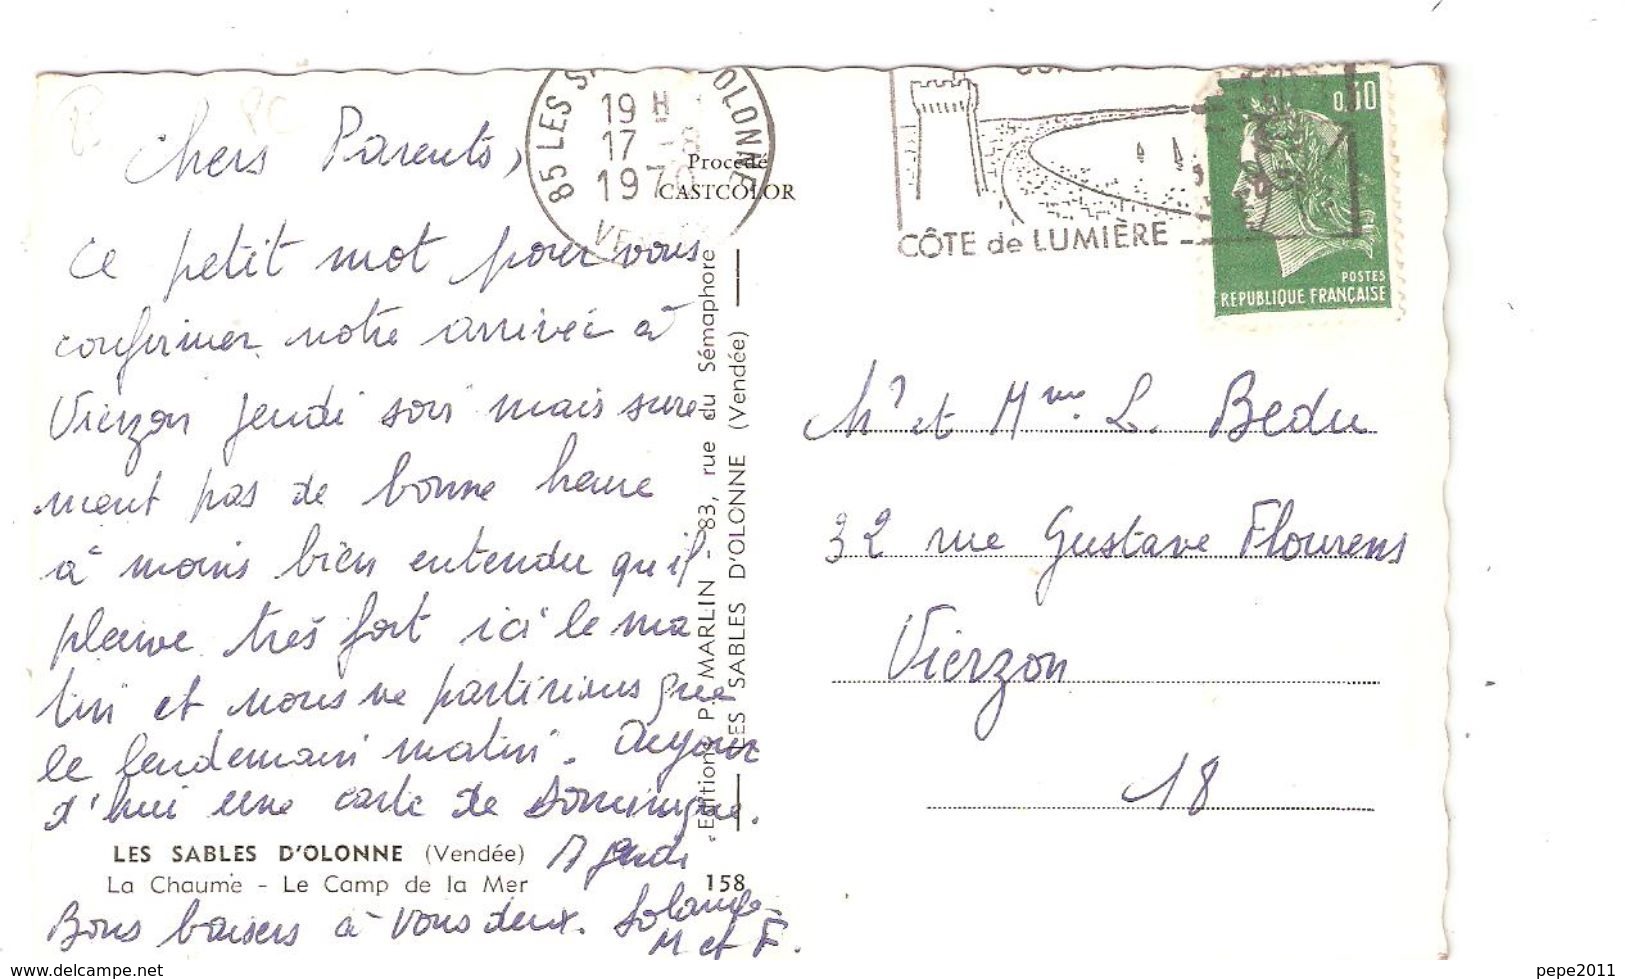 Chers Parents,
Ce petit mot pour vous
confirmer notre arrivée à
Vierzon jeudi soir mais sure
ment pas de bonne heure
à moins bien entendu qu'il
pleuve très fort ici le ma
tin et nous ne partirions que
le lendemain matin. Aujour
d'hui une carte de Dominique.
A jeudi
LES SABLES D'OLONNE (Vendée)
La Chaume - Le Camp de la Mer
158
Bons baisers à vous deux. Solange
M et F.
85 LES S OLONNE
19 H
17 -8
1970
VE
Procédé
CASTCOLOR
Editions P. MARLIN - 83, rue du Sémaphore
LES SABLES D'OLONNE (Vendée)
CÔTE de LUMIÈRE
0,30
POSTES
REPUBLIQUE FRANÇAISE
Mr et Mme L. Bedu
32 rue Gustave Flourens
Vierzon
18
www.delcampe.net
pepe2011